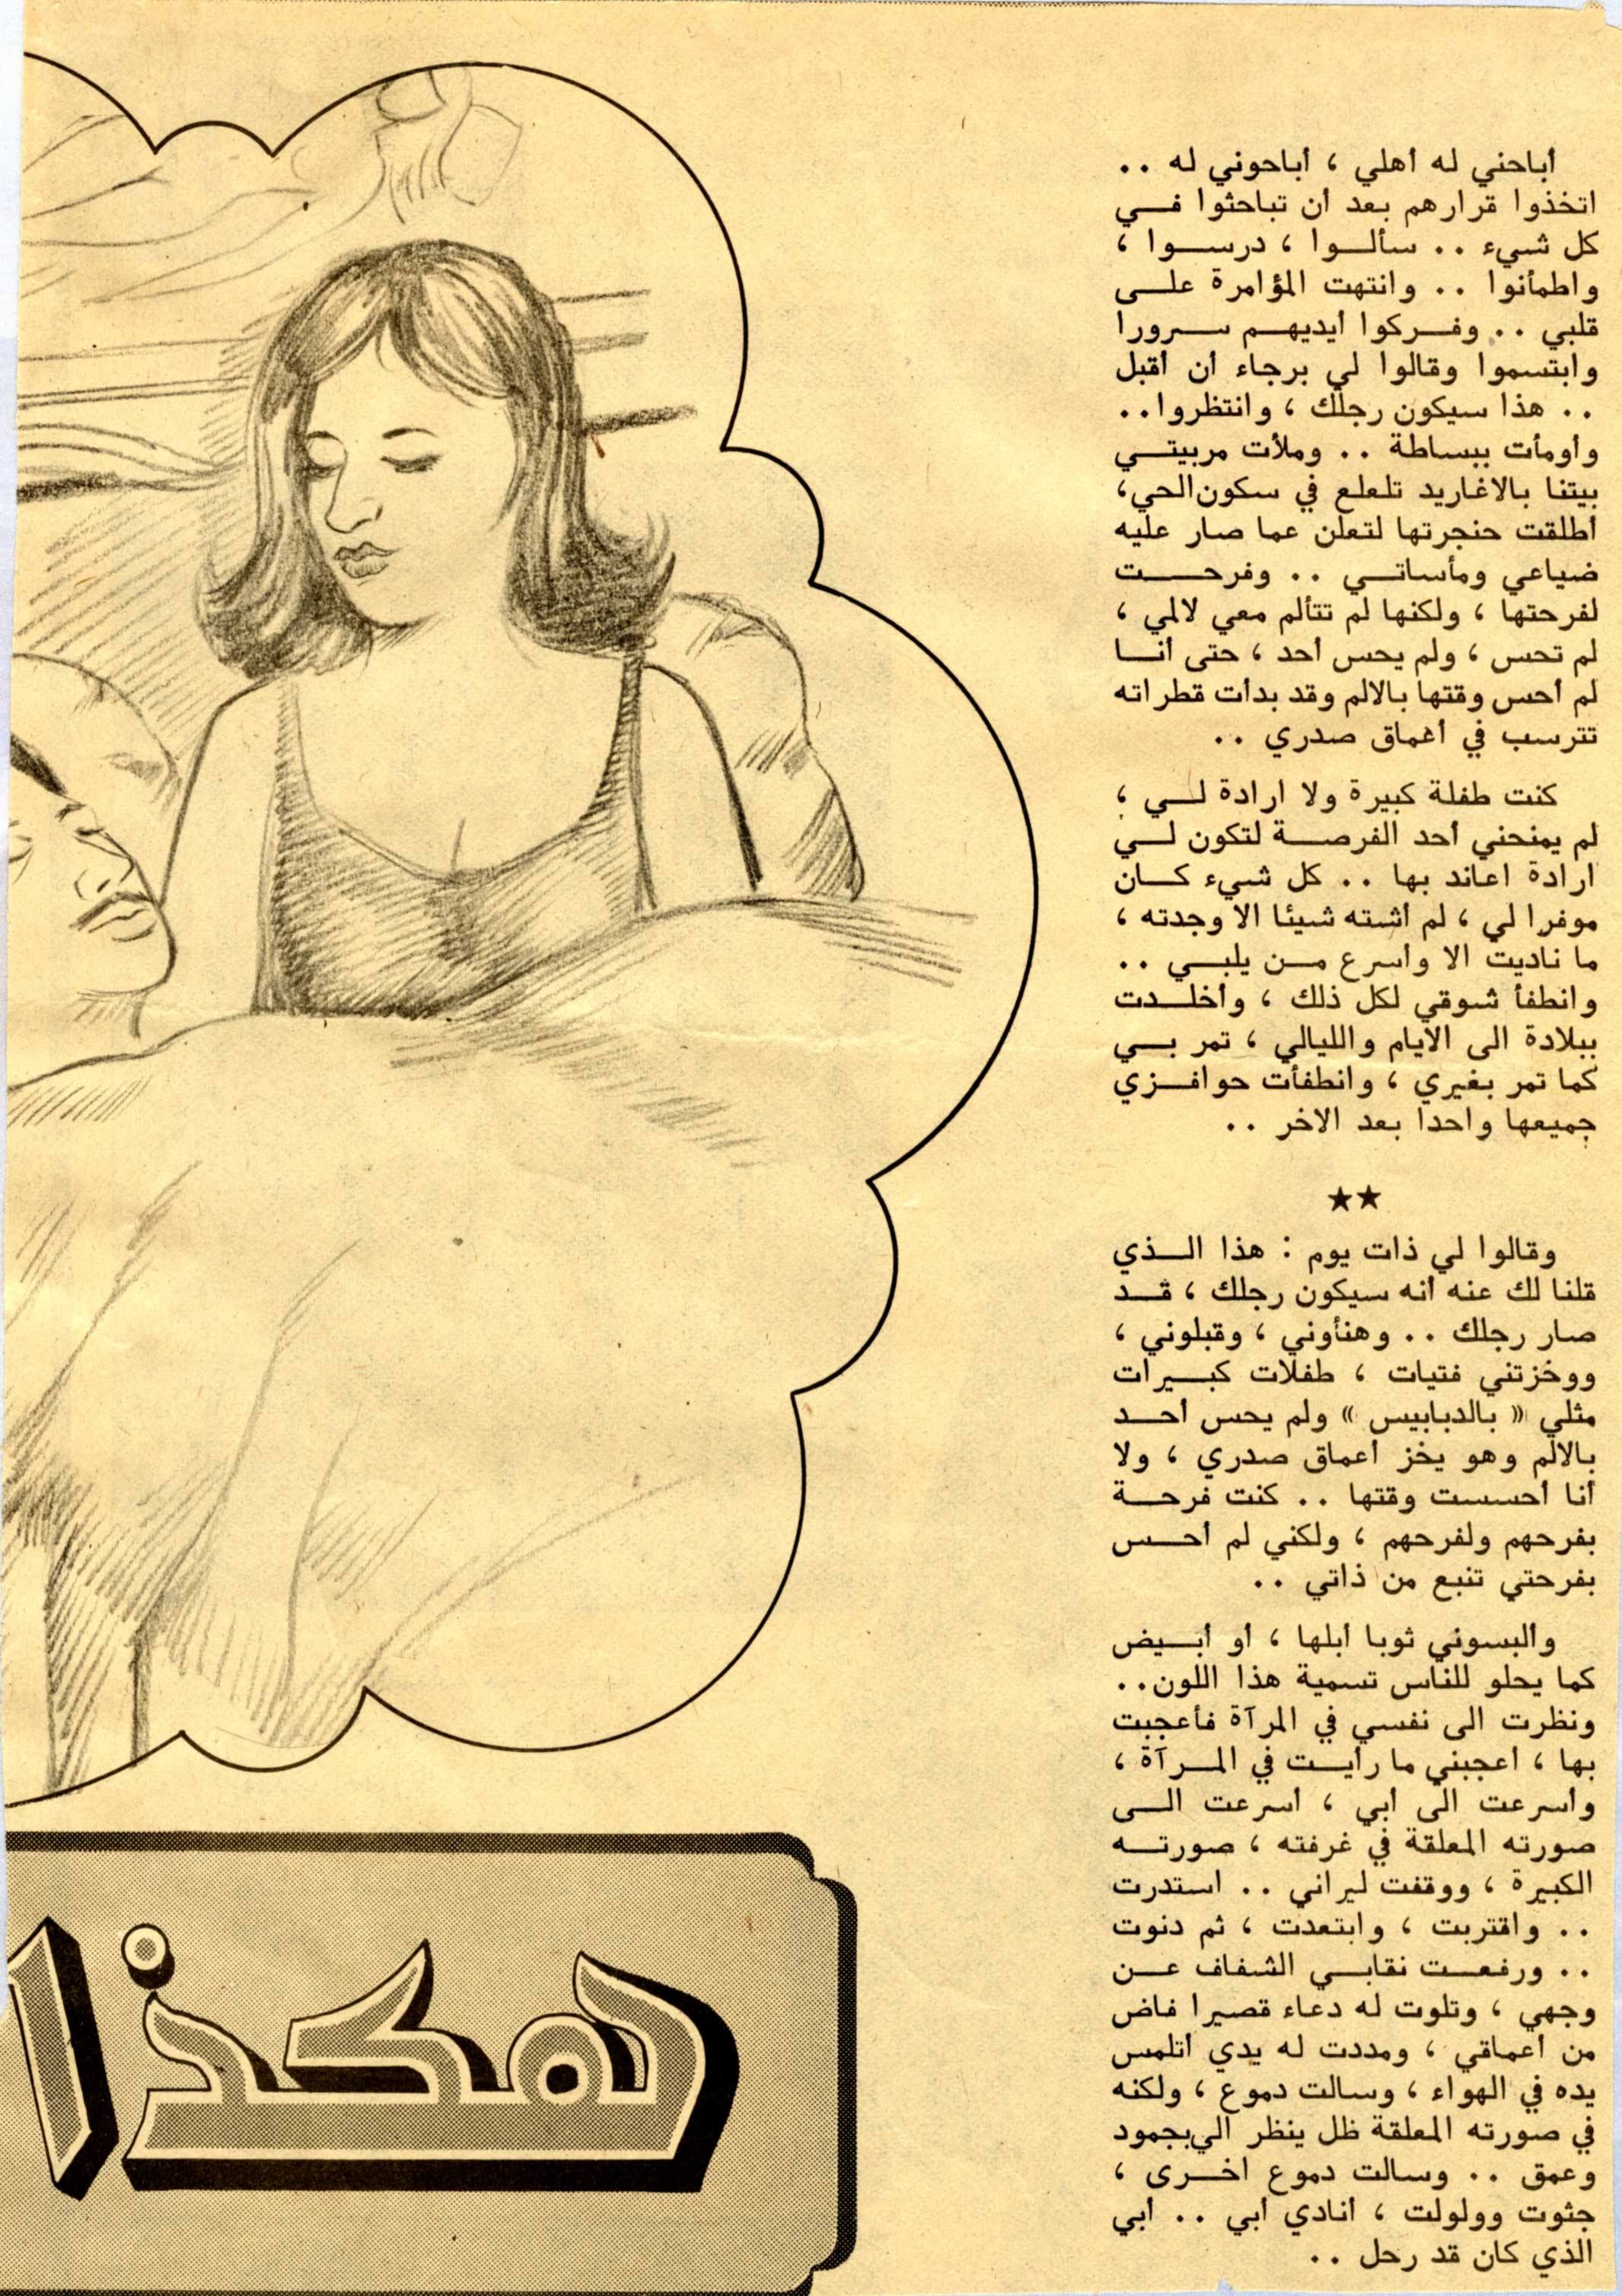 أباحني له أهلي ، أباحوني له ..
اتخذوا قرارهم بعد أن تباحثوا فــي
كل شيء .. سألــوا ، درســوا ،
واطمأنوا .. وانتهت المؤامرة علــى
قلبي .. وفــركوا أيديهــم ســرورا
وابتسموا وقالوا لي برجاء أن أقبل
.. هذا سيكون رجلك ، وانتظروا ..
وأومأت ببساطة .. وملأت مربيتــي
بيتنا بالاغاريد تلعلع في سكون الحي ،
أطلقت حنجرتها لتعلن عما صار عليه
ضياعي ومأساتــي .. وفرحــت
لفرحتها ، ولكنها لم تتألم معي لالمي ،
لم تحس ، ولم يحس أحد ، حتى أنــا
لم أحس وقتها بالالم وقد بدأت قطراته
تترسب في أعماق صدري ..
كنت طفلة كبيرة ولا ارادة لــي ،
لم يمنحني أحد الفرصــة لتكون لــي
ارادة اعاند بها .. كل شيء كــان
موفرا لي ، لم أشته شيئا الا وجدته ،
ما ناديت الا وأسرع مــن يلبــي ..
وانطفأ شوقي لكل ذلك ، وأخلــدت
ببلادة الى الايام والليالي ، تمر بــي
كما تمر بغيري ، وانطفأت حوافــزي
جميعها واحدا بعد الاخر ..
★★
وقالوا لي ذات يوم : هذا الــذي
قلنا لك عنه أنه سيكون رجلك ، قــد
صار رجلك .. وهنأوني ، وقبلوني ،
ووخزتني فتيات ، طفلات كبــيرات
مثلي « بالدبابيس » ولم يحس أحــد
بالالم وهو يخز أعماق صدري ، ولا
أنا أحسست وقتها .. كنت فرحــة
بفرحهم ولفرحهم ، ولكني لم أحــس
بفرحتي تنبع من ذاتي ..
وألبسوني ثوبا أبلها ، أو أبــيض
كما يحلو للناس تسمية هذا اللون ..
ونظرت الى نفسي في المرآة فأعجبت
بها ، أعجبني ما رأيــت في المــرآة ،
وأسرعت الى أبي ، أسرعت الــى
صورته المعلقة في غرفته ، صورتــه
الكبيرة ، ووقفت ليراني .. استدرت
.. واقتربت ، وابتعدت ، ثم دنوت
.. ورفعــت نقابــي الشفاف عــن
وجهي ، وتلوت له دعاء قصيرا فاض
من أعماقي ، ومددت له يدي أتلمس
يده في الهواء ، وسالت دموع ، ولكنه
في صورته المعلقة ظل ينظر الي بجمود
وعمق .. وسالت دموع اخــرى ،
جثوت وولولت ، أنادي أبي .. أبي
الذي كان قد رحل ..
هكذا